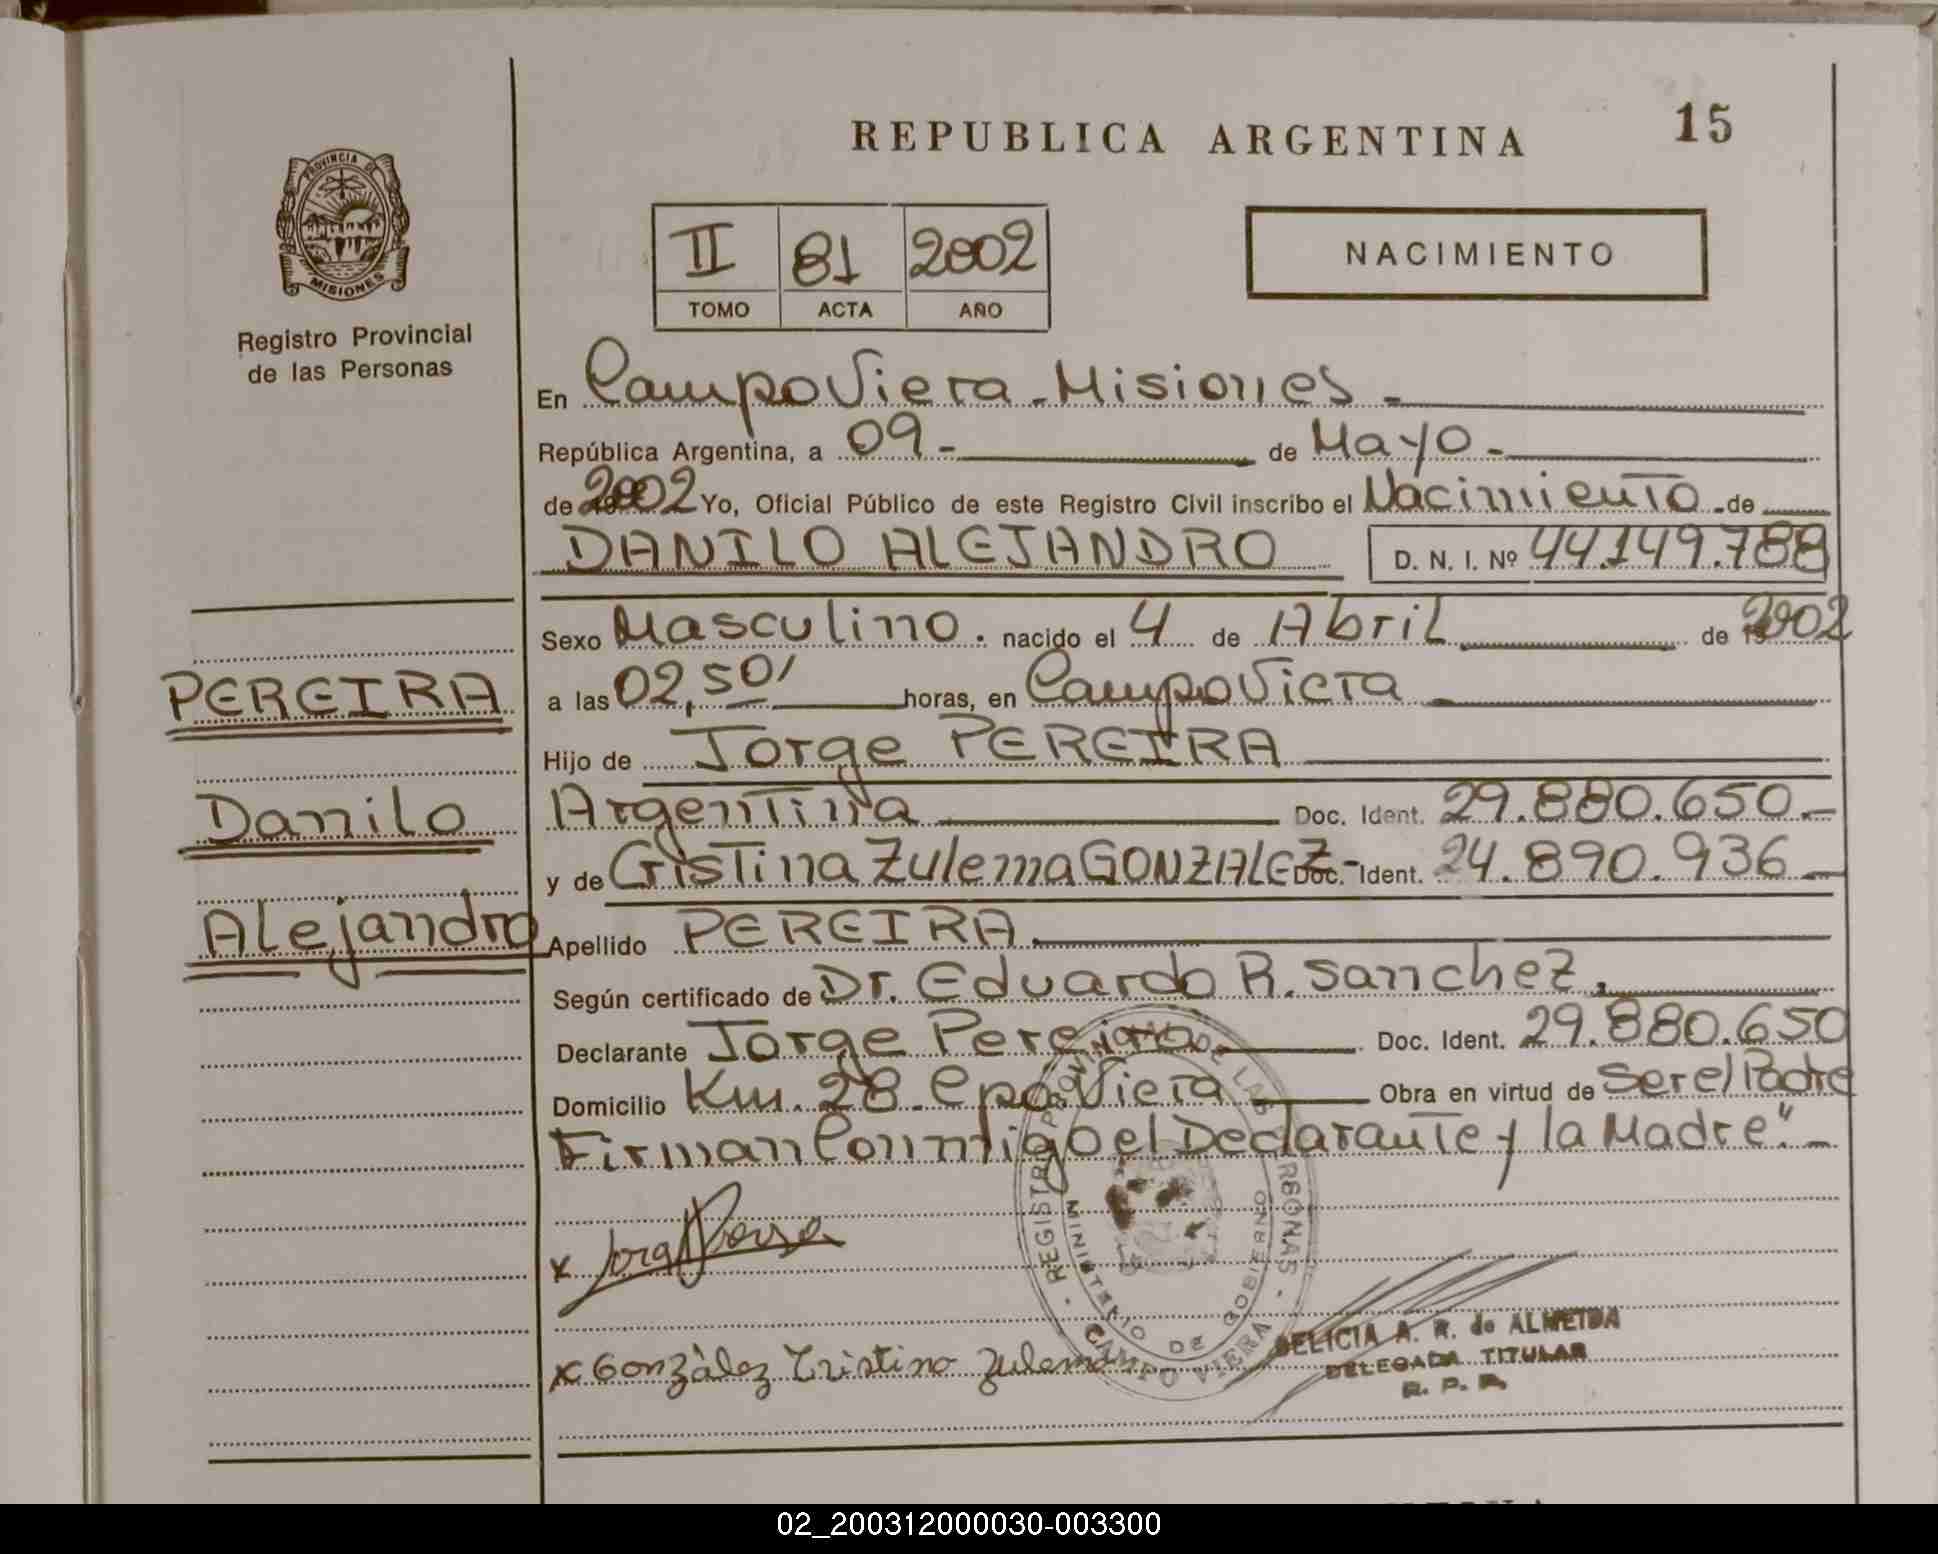 REPUBLICA ARGENTINA
15
PROVINCIA DE
MISIONES
Registro Provincial
de las Personas
II 81 2002
TOMO ACTA AÑO
NACIMIENTO
En Campo Viera - Misiones -
República Argentina, a 09 - de Mayo -
de 2002 Yo, Oficial Público de este Registro Civil inscribo el Nacimiento de
DANILO ALEJANDRO D. N. I. Nº 44.149.788
Sexo Masculino. nacido el 4 de Abril de 2002
a las 02,50' horas, en Campo Viera
Hijo de Jorge PEREIRA
Argentina Doc. Ident. 29.880.650.-
y de Cristina Zulema GONZALEZ - Doc. Ident. 24.890.936 -
Apellido PEREIRA.
Según certificado de Dr. Eduardo R. Sanchez.
Declarante Jorge Pereira Doc. Ident. 29.880.650
Domicilio Km. 28. Cpo Viera Obra en virtud de Ser el Padre
Firman Conmigo el Declarante y la Madre". -
PEREIRA
Danilo
Alejandro
x
x Gonzàlez Cristina Zulema
REGISTRO PROVINCIAL DE LAS PERSONAS
MINISTERIO DE GOBIERNO
CAMPO VIERA
DELICIA A. R. de ALMEIDA
DELEGADA TITULAR
R. P. P.
02_200312000030-003300